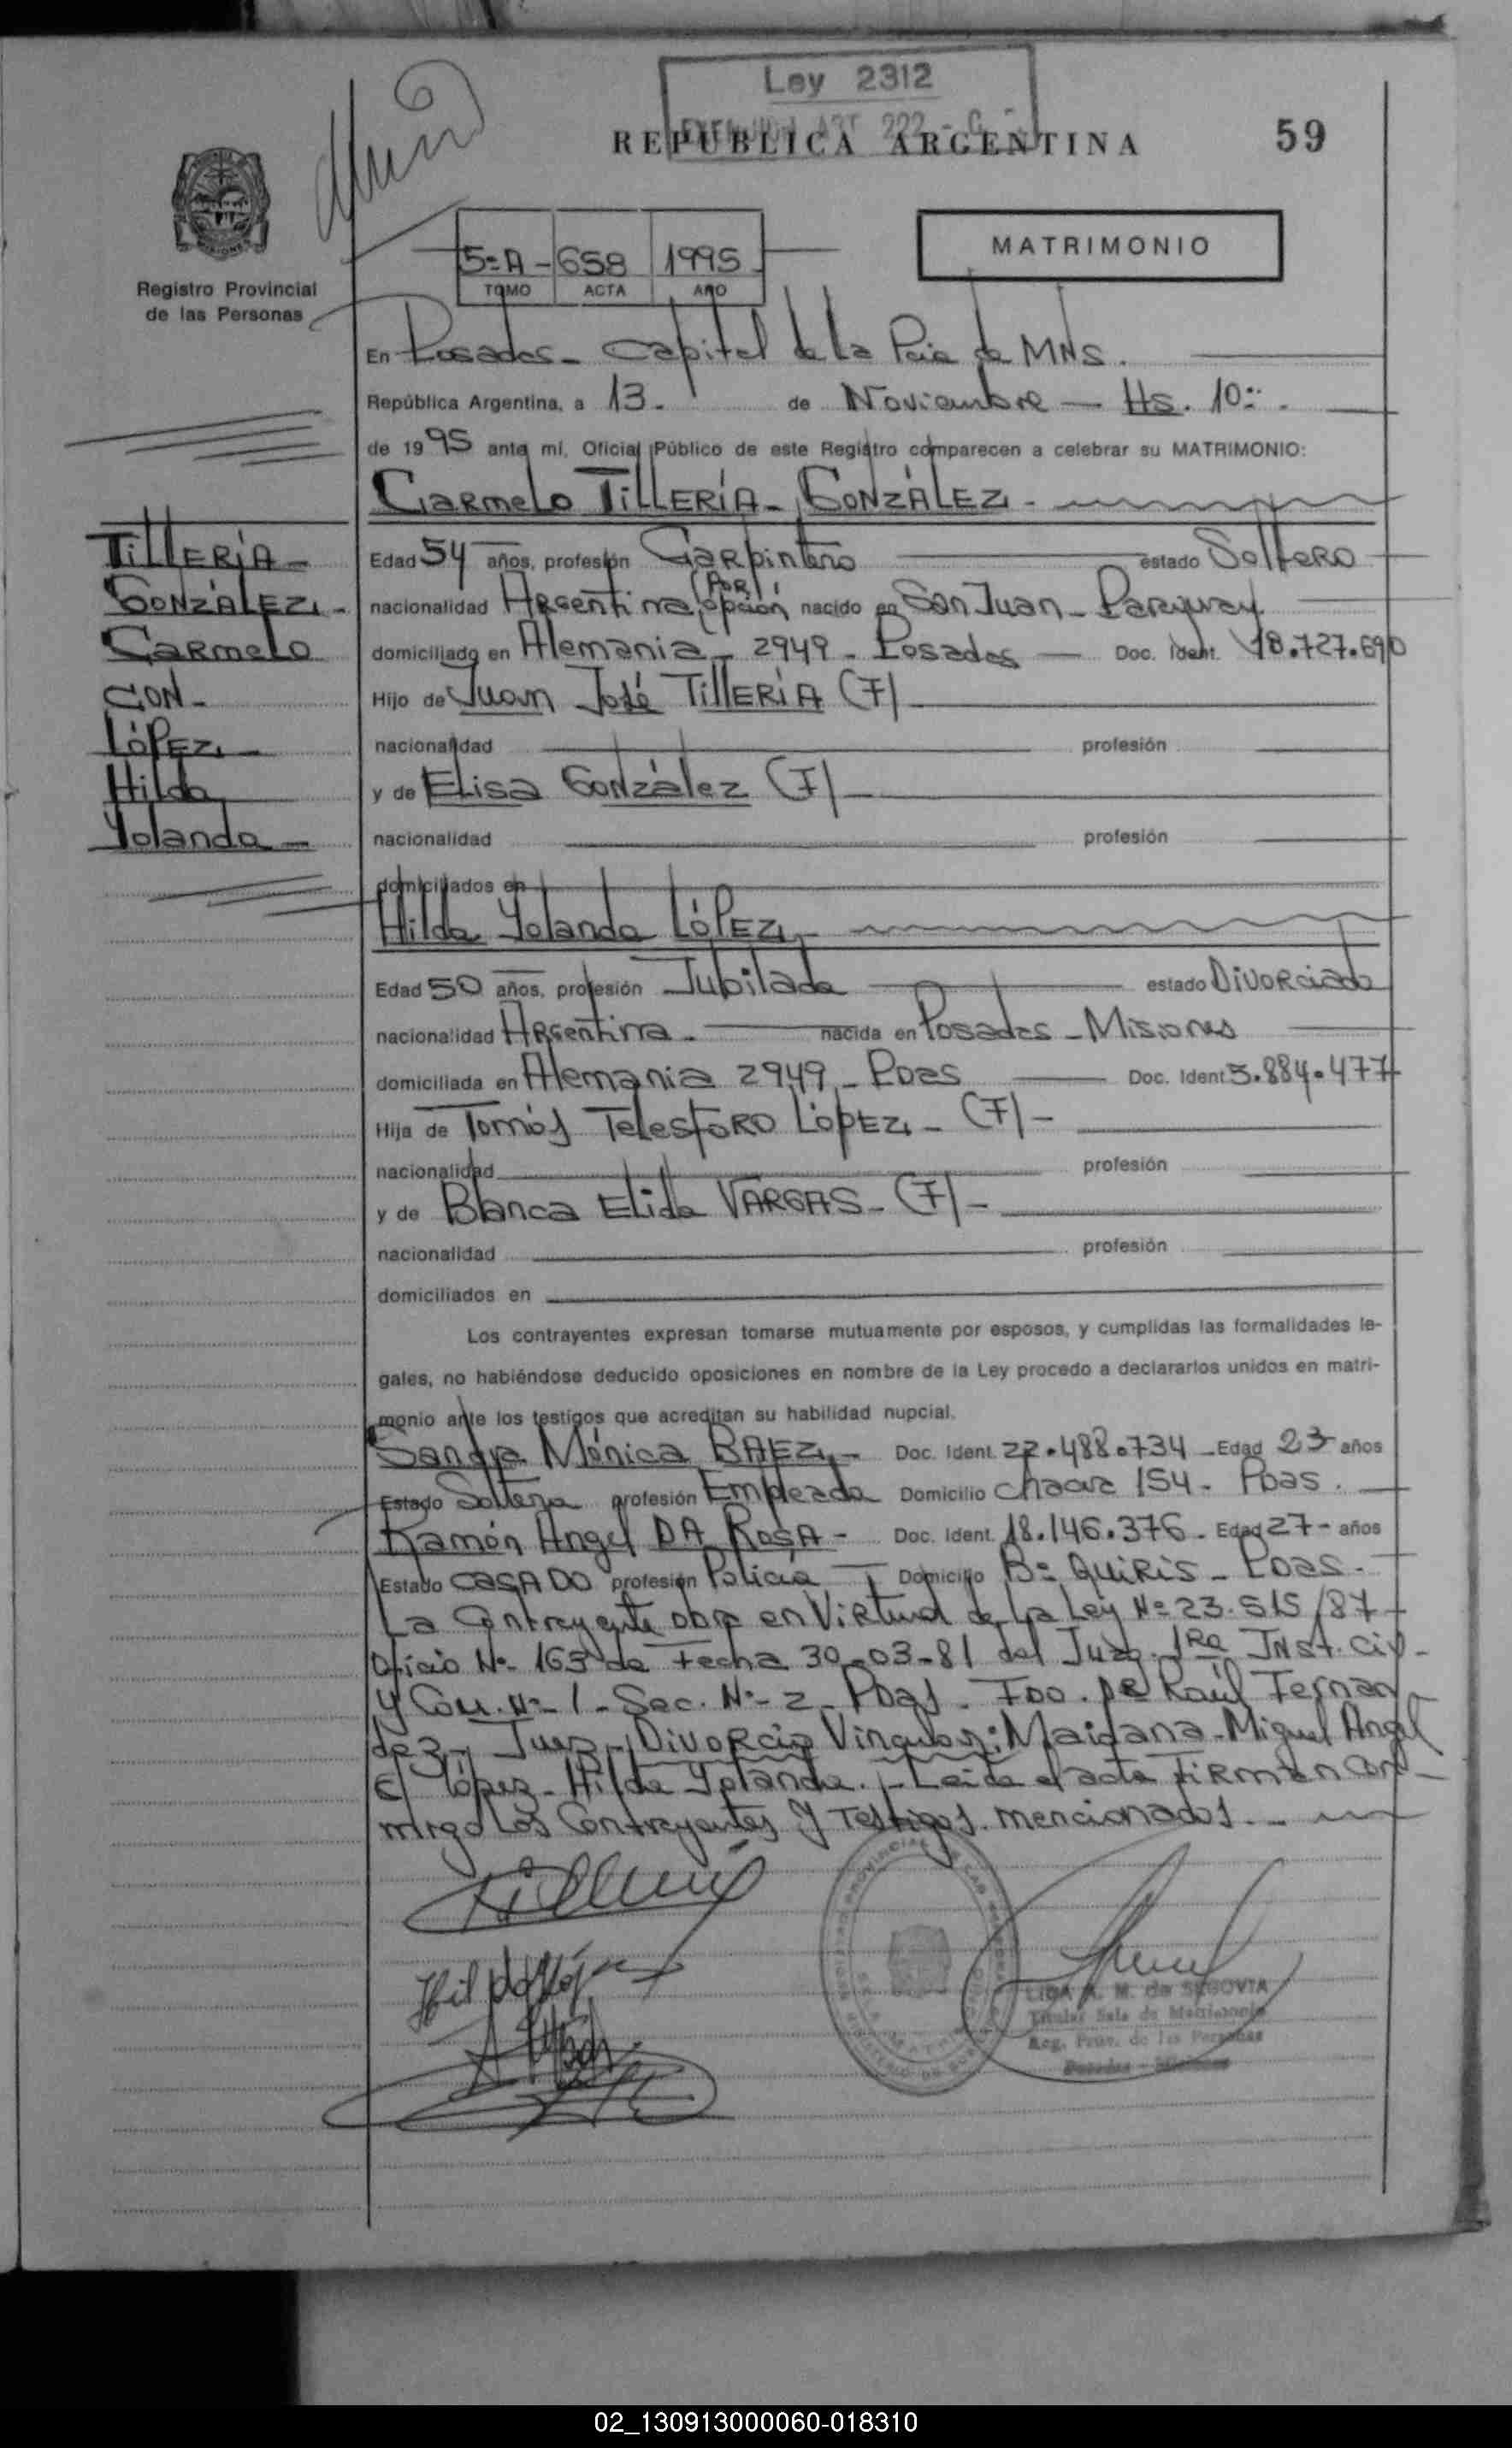 Ley 2312
REPUBLICA ARGENTINA
59
Registro Provincial
de las Personas
5=A - 658 1995
TOMO ACTA AÑO
MATRIMONIO
En Posadas - Capital de la Pcia de MNS.
República Argentina, a 13. de Noviembre - Hs. 10=.
de 1995 ante mí, Oficial Público de este Registro comparecen a celebrar su MATRIMONIO:
Carmelo TILLERÍA - GONZÁLEZ -
TILLERÍA -
GONZÁLEZ -
Carmelo
CON -
LÓPEZ -
Hilda
Yolanda -
Edad 54 años, profesión Carpintero estado Soltero
nacionalidad Argentina (POR opción) nacido en San Juan - Paraguay
domiciliado en Alemania - 2949 - Posadas - Doc. Ident. 18.727.690
Hijo de Juan José TILLERÍA (F)
nacionalidad profesión
y de Elisa González (F)
nacionalidad profesión
domiciliados en
Hilda Yolanda LÓPEZ -
Edad 50 años, profesión Jubilada estado Divorciada
nacionalidad Argentina - nacida en Posadas - Misiones
domiciliada en Alemania 2949 - Pdas Doc. Ident 5.884.477
Hija de Tomás Telesforo LÓPEZ - (F) -
nacionalidad profesión
y de Blanca Elida VARGAS - (F) -
nacionalidad profesión
domiciliados en
Los contrayentes expresan tomarse mutuamente por esposos, y cumplidas las formalidades le-
gales, no habiéndose deducido oposiciones en nombre de la Ley procedo a declararlos unidos en matri-
monio ante los testigos que acreditan su habilidad nupcial.
Sandra Mónica BAEZ - Doc. Ident. 22.488.734 - Edad 23 años
Estado Soltera profesión Empleada Domicilio chacra 154 - Pdas.
Ramón Angel DA ROSA - Doc. Ident. 18.146.376 - Edad 27 - años
Estado CASADO profesión Policía Domicilio B= QUIRIS - Pdas.
La Contrayente obra en Virtud de la Ley Nº 23.515/87 -
Oficio Nº 163 de Fecha 30-03-81 del Juzg. 1Ra INST. Civ -
y Com. Nº 1 - Sec. Nº 2 - Pdas - FDO. DR Raúl Fernan
dez - Juez - Divorcio Vincular: Maidana - Miguel Angel
c/ López - Hilda Yolanda. - Leída el acta FIRMAN con -
migo Los Contrayentes y Testigos mencionados. -
LIDA A. M. de SEGOVIA
Titular Sala de Matrimonio
Reg. Prov. de las Personas
Posadas - Misiones
02_130913000060-018310